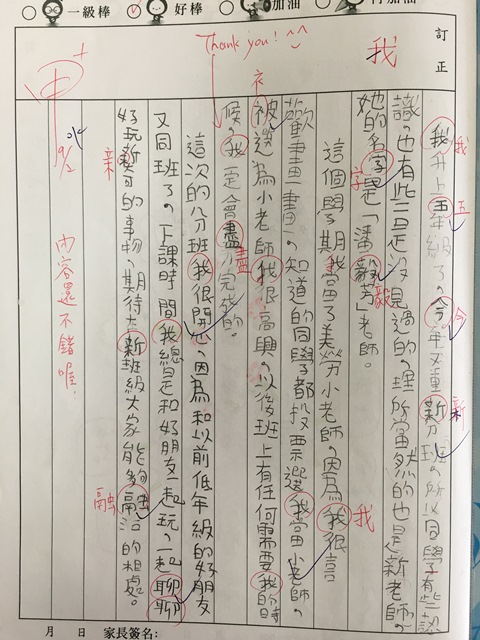 一級棒
好棒
加油
再加油
訂正
我
Thank you! ^^
我升上五年級了。今年又重新分班。所以同學有些認
識。也有些百是沒見過的。理所當然的也是新老師。
她的名字是「潘毅芳」老師。
這個學期我當了美勞小老師。因為我很喜
歡畫畫。知道的同學都投票選我當小老師。
被選為小老師我很高興。以後班上有任何需要我的時
候。我一定會盡心完成的。
這次的分班我很開心。因為和以前低年級的好朋友
又同班了。下課時間我總是和好朋友一起玩。一起聊聊
好玩新奇的事物。期待在新班級大家能夠融洽的相處。
我
五
今
新
字
毅
我
衤
盡
新
融
甲+
9/2
內容還不錯喔!
月 日 家長簽名: